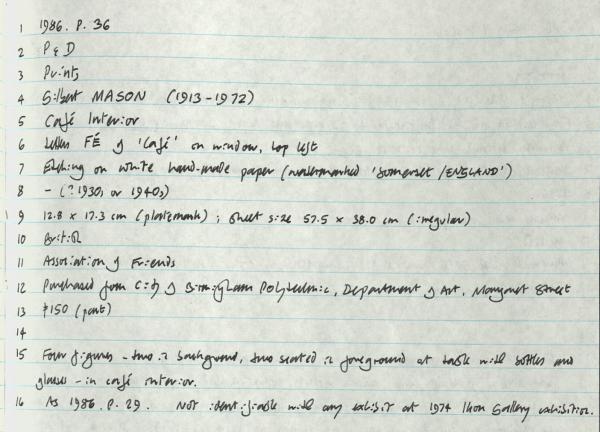 1 1986. P. 36
2 P & D
3 Prints
4 Gilbert MASON (1913-1972)
5 Café Interior
6 Letters FÉ of 'Café' on window, top left
7 Etching on white hand-made paper (watermarked 'SOMERSET / ENGLAND')
8 - (? 1930s or 1940s)
9 12.8 x 17.3 cm (platemark) ; sheet size 57.5 x 38.0 cm (irregular)
10 British
11 Association of Friends
12 Purchased from City of Birmingham Polytechnic, Department of Art, Margaret Street
13 £150 (part)
14
15 Four figures - two in background, two seated in foreground at table with bottles and
glasses - in café interior.
16 As 1986. P. 29. Not identifiable with any exhibit at 1974 Ikon Gallery exhibition.